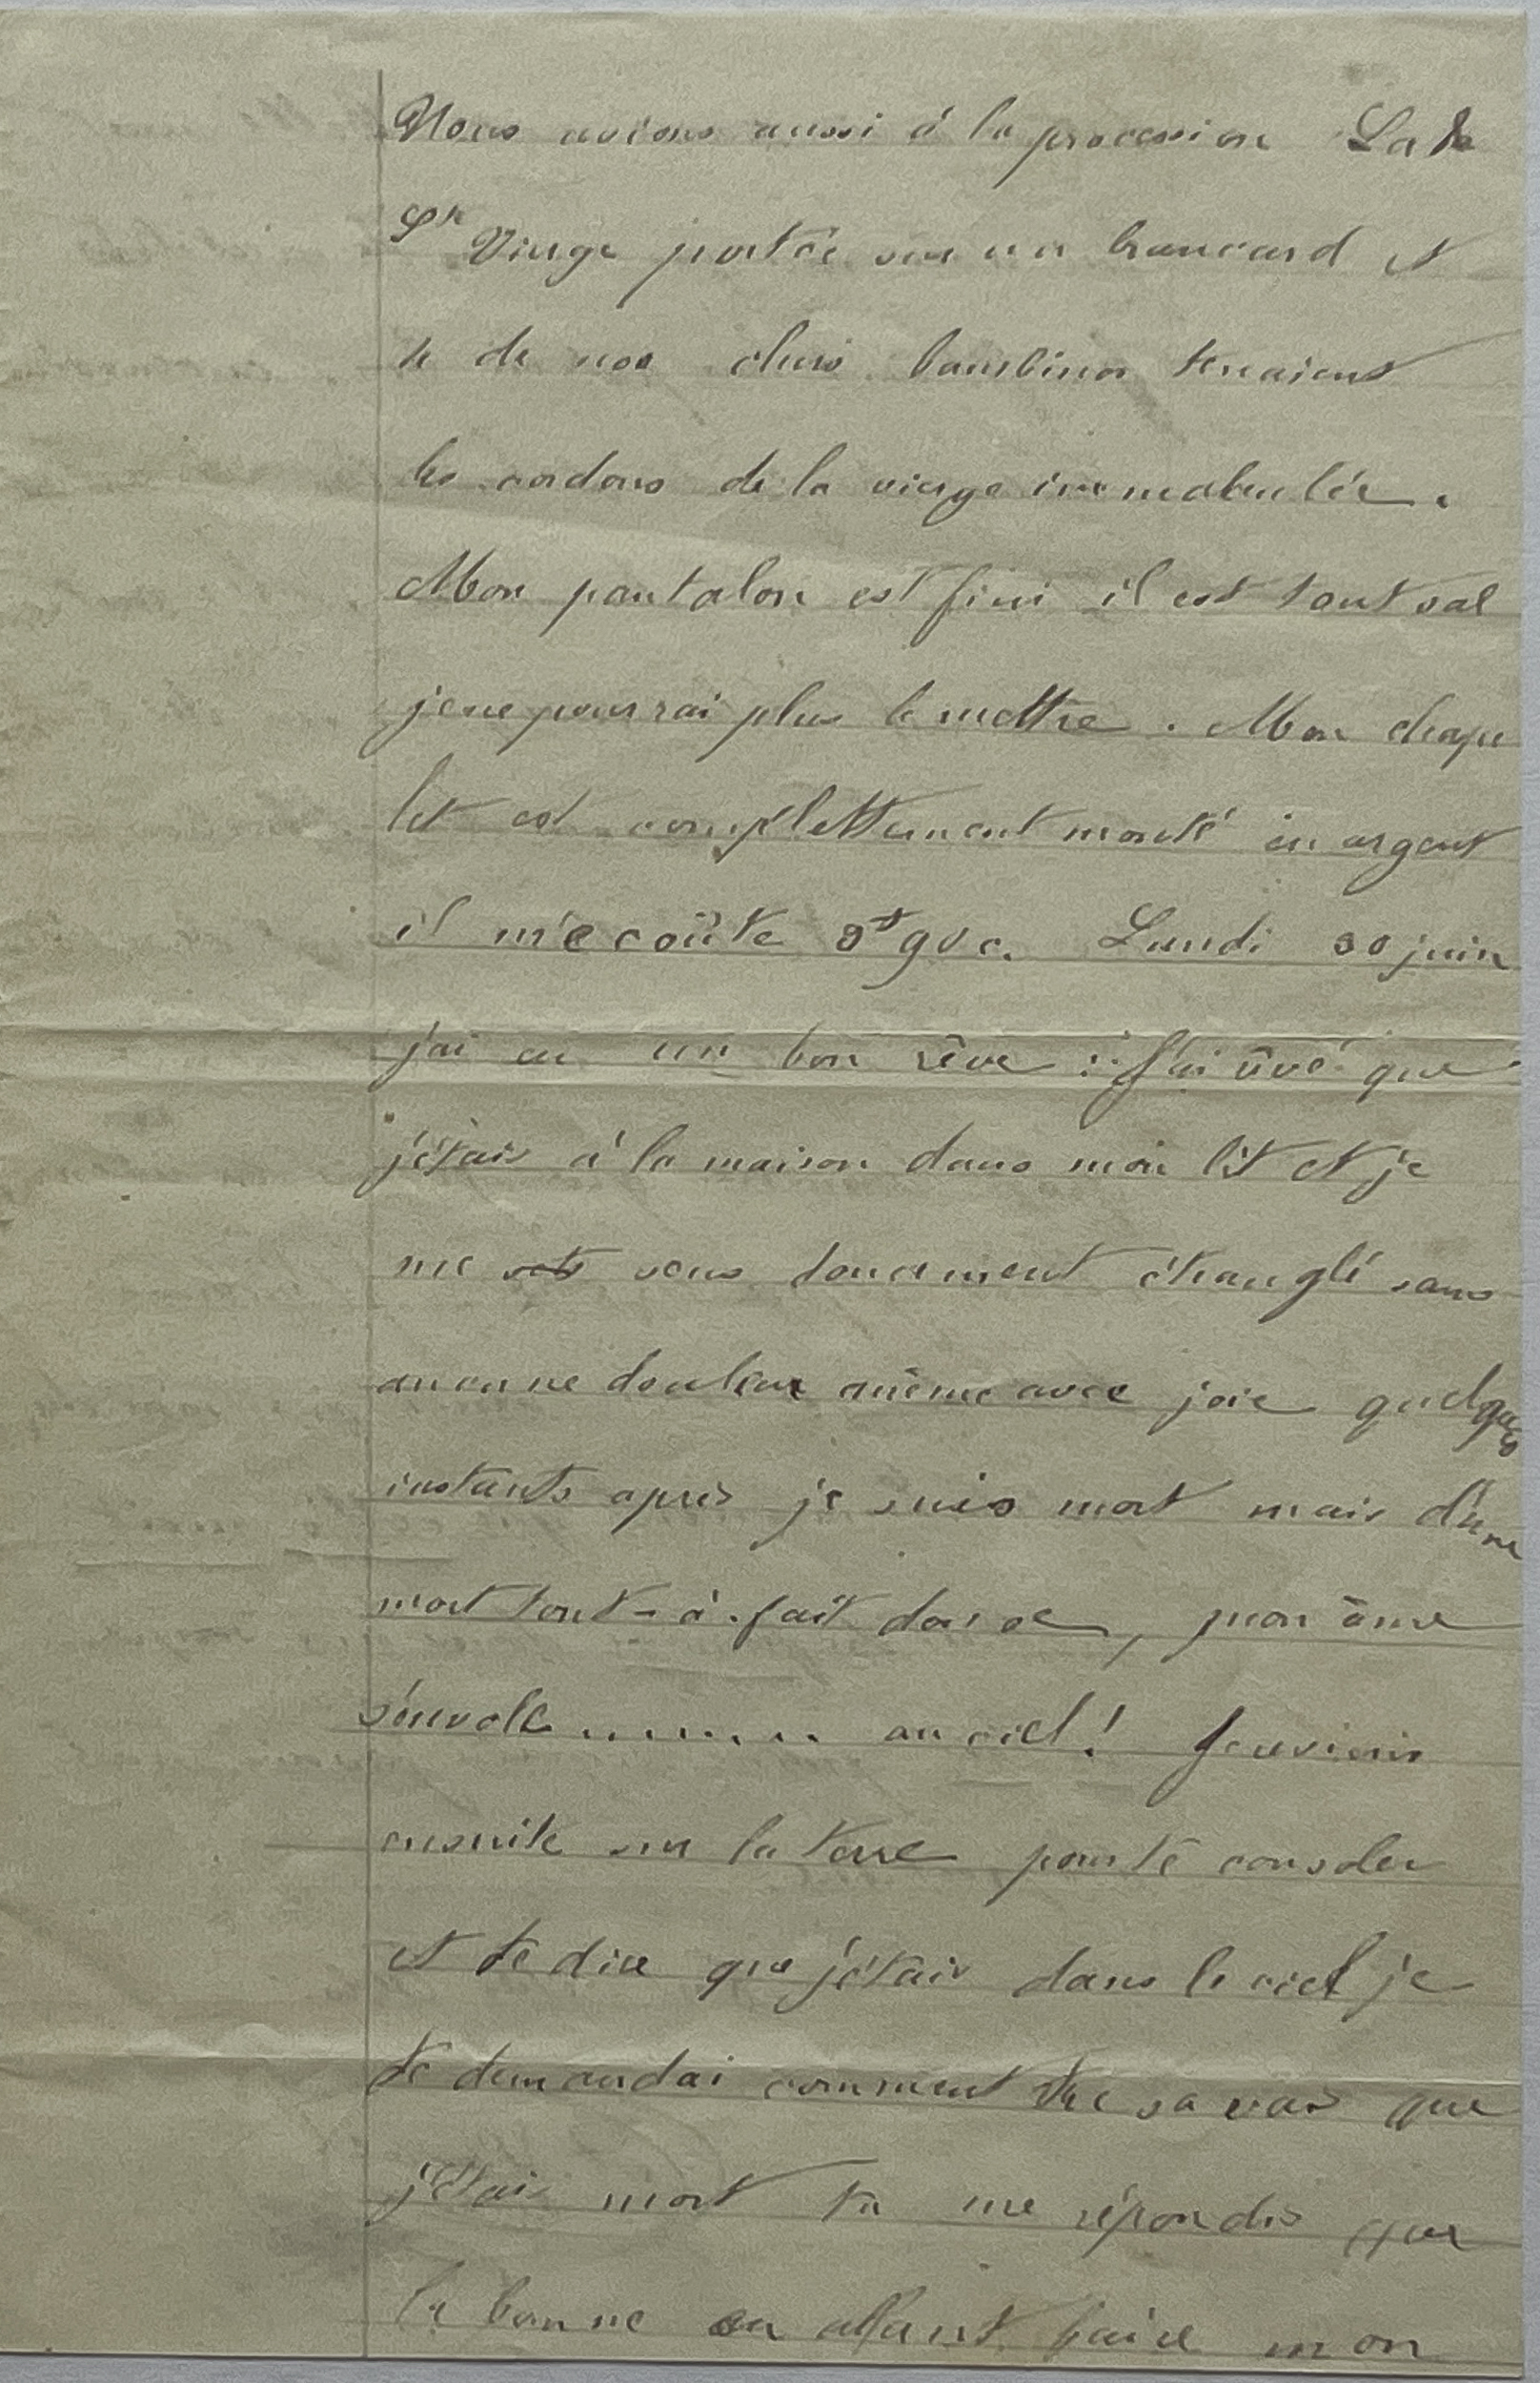 Nous avions aussi à la procession La
Ste Vierge portée sur un brancard et
4 de nos chers bambinos tenaient
les cordons de la vierge immaculée.
Mon pantalon est fini il est tout sal
je ne pourrai plus le mettre. Mon chape
let est complettement monté en argent
il m'e coûte 90 c. Lundi 30 juin
j'ai eu un bon rêve : J'ai rêvé que
j'étais à la maison dans mon lit et je
me sens doucement étranglé sans
aucune douleur même avec joie quelques
instants après je suis mort mais d'une
mort tout-à-fait douce, mon âme
s'envole ......... au ciel! Je reviens
ensuite sur la terre pour té consoler
et te dire que j'étais dans le ciel je
te demandai comment tu savais que
j'étais mort tu me répondis que
la bonne en allant faire mon